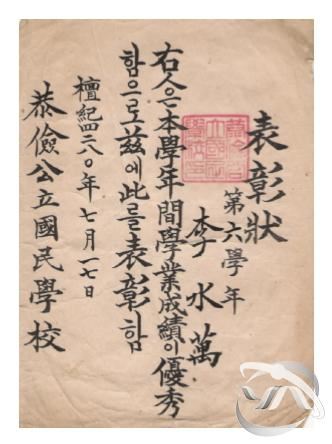 表彰狀
第六學年
李水萬
右人은本學年間學業成績이優秀
함으로玆에此를表彰함
檀紀四二八０年七月一七日
恭儉公立國民學校